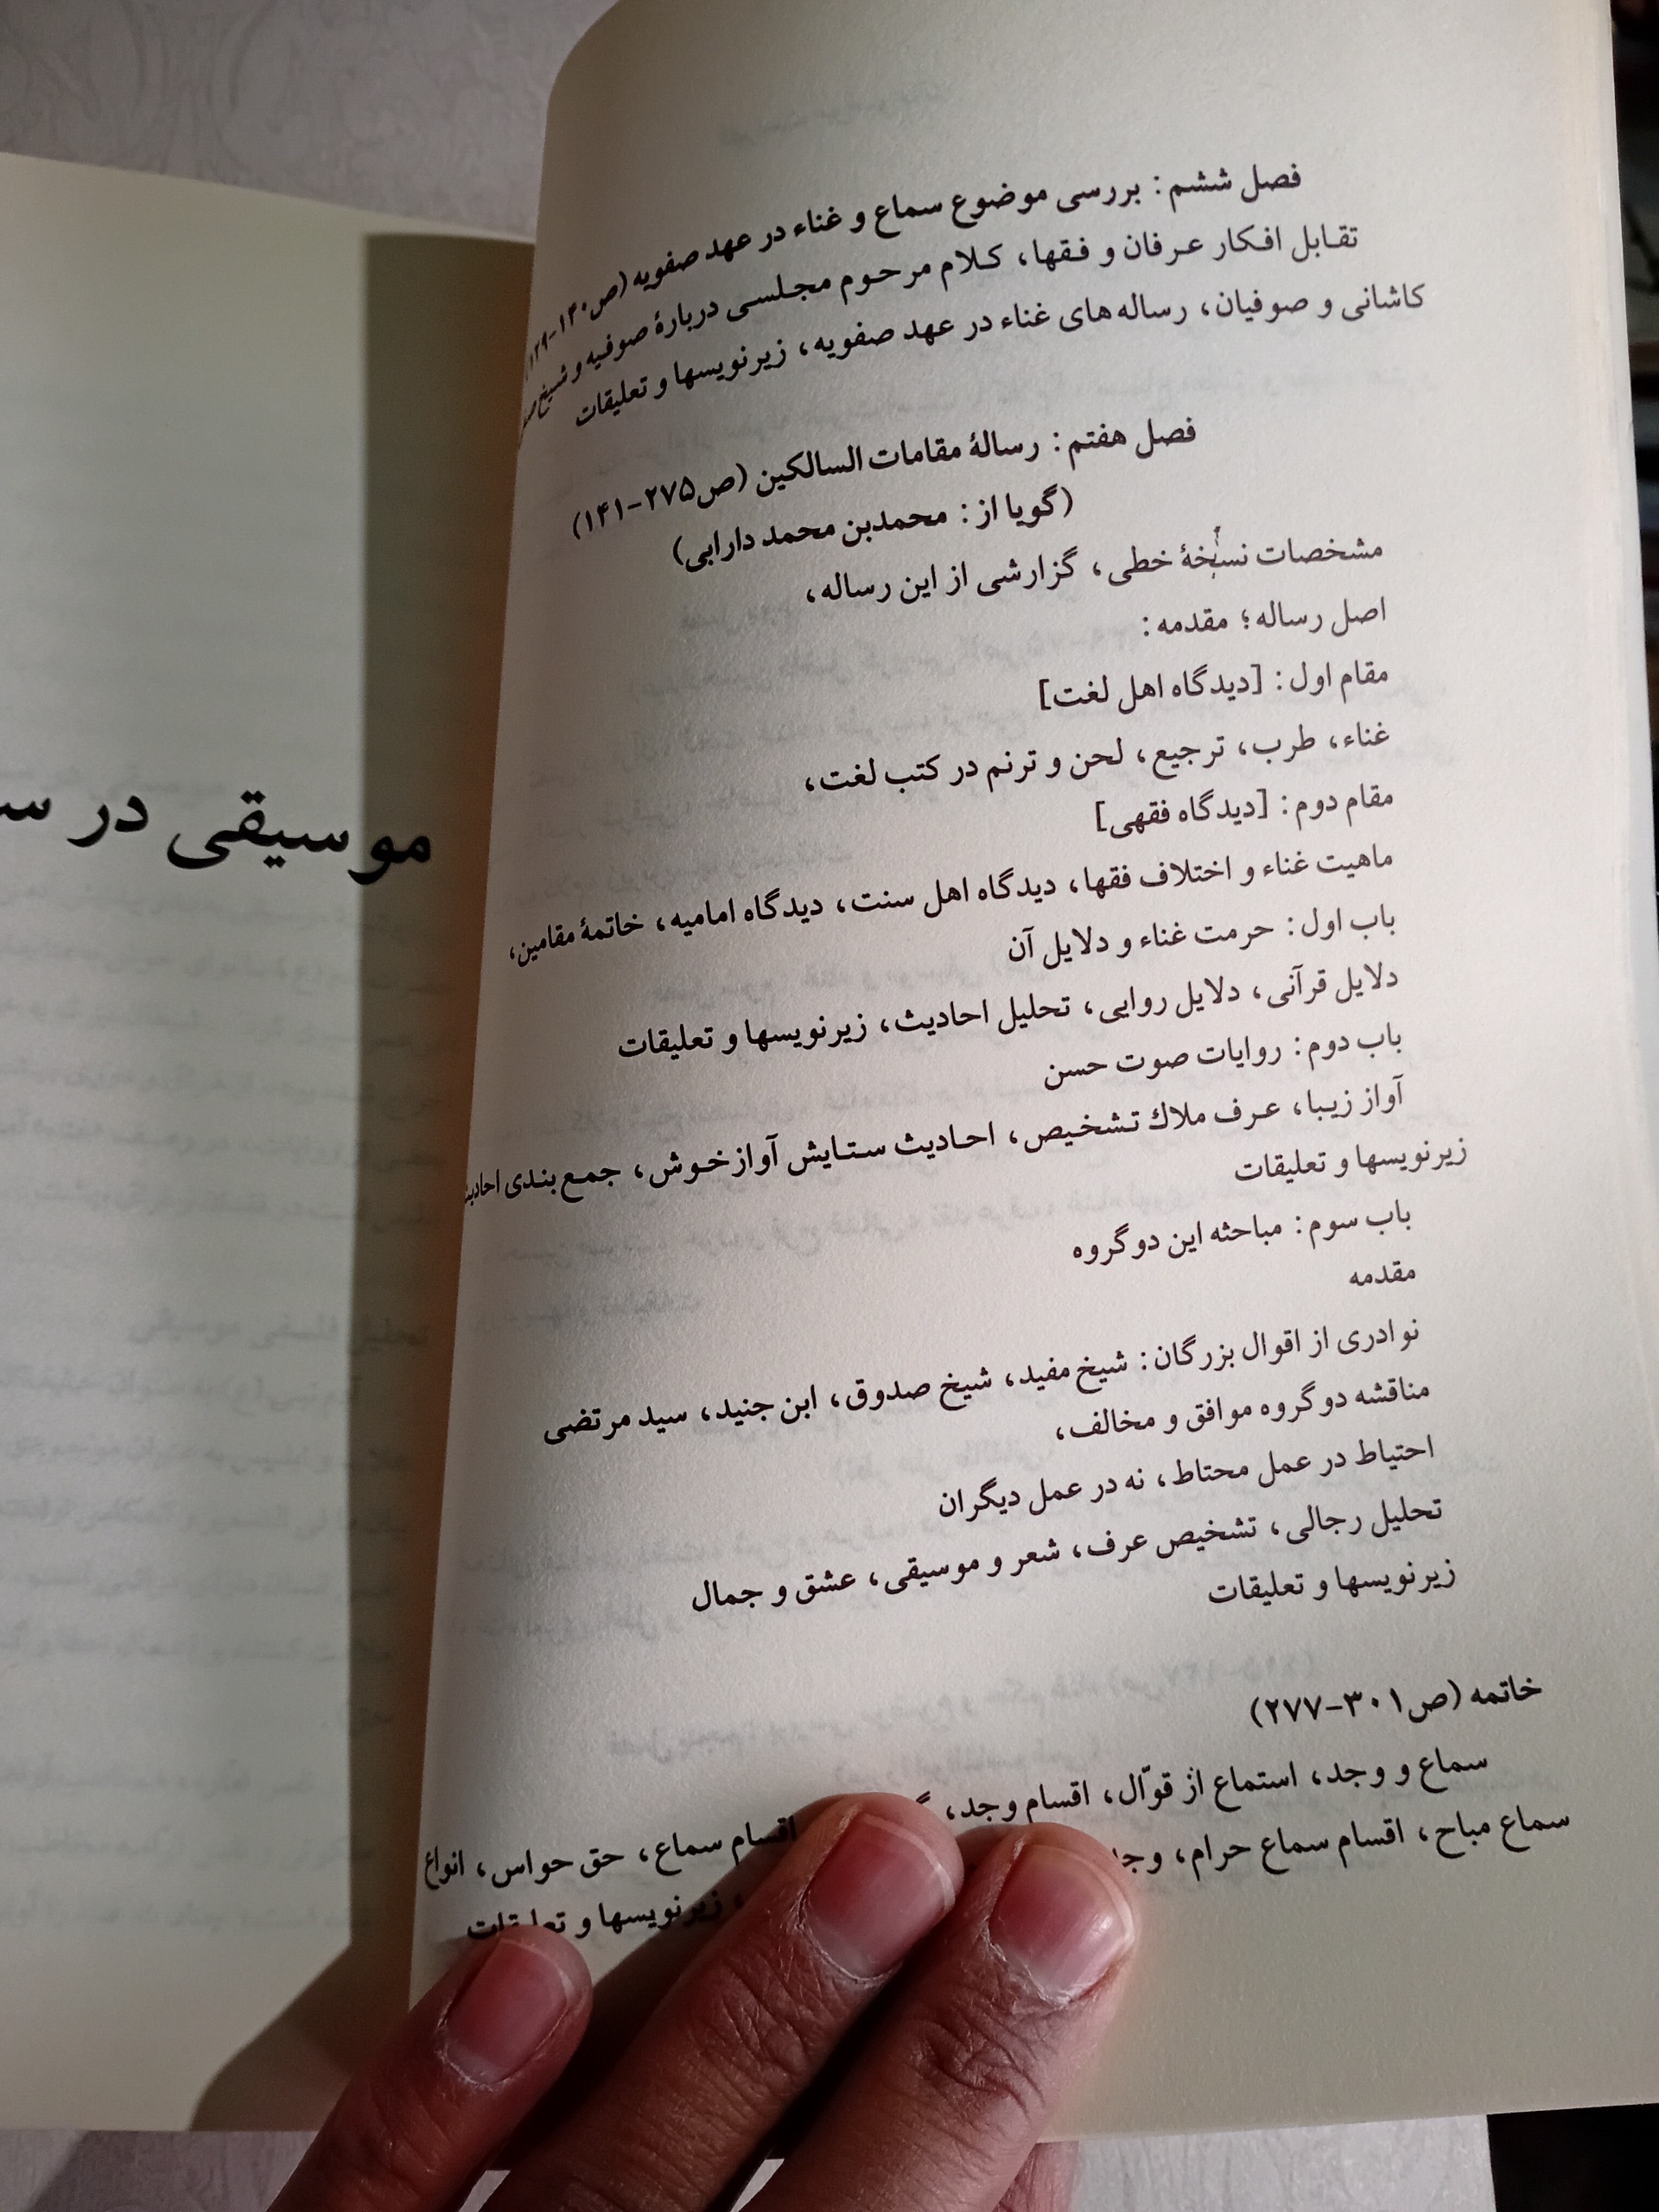 فصل ششم: بررسی موضوع سماع و غناء در عهد صفویه (ص۱۴۰-۱۲۹)
تقابل افکار عرفان و فقها، کلام مرحوم مجلسی دربارهٔ صوفیه و شیخ
کاشانی و صوفیان، رساله‌های غناء در عهد صفویه، زیرنویسها و تعلیقات
فصل هفتم: رسالهٔ مقامات السالکین (ص۲۷۵-۱۴۱)
(گویا از: محمدبن محمد دارابی)
مشخصات نسخهٔ خطی، گزارشی از این رساله،
اصل رساله؛ مقدمه:
مقام اول: [دیدگاه اهل لغت]
غناء، طرب، ترجیع، لحن و ترنم در کتب لغت،
مقام دوم: [دیدگاه فقهی]
ماهیت غناء و اختلاف فقها، دیدگاه اهل سنت، دیدگاه امامیه، خاتمهٔ مقامین،
باب اول: حرمت غناء و دلایل آن
دلایل قرآنی، دلایل روایی، تحلیل احادیث، زیرنویسها و تعلیقات
باب دوم: روایات صوت حسن
آواز زیبا، عرف ملاك تشخیص، احادیث ستایش آواز خوش، جمع‌بندی احادیث
زیرنویسها و تعلیقات
باب سوم: مباحثه این دو گروه
مقدمه
نوادری از اقوال بزرگان: شیخ مفید، شیخ صدوق، ابن جنید، سید مرتضی
مناقشه دو گروه موافق و مخالف،
احتیاط در عمل محتاط، نه در عمل دیگران
تحلیل رجالی، تشخیص عرف، شعر و موسیقی، عشق و جمال
زیرنویسها و تعلیقات
خاتمه (ص۳۰۱-۲۷۷)
سماع و وجد، استماع از قوّال، اقسام وجد، اقسام سماع، حق حواس، انواع
سماع مباح، اقسام سماع حرام، زیرنویسها و تعلیقات
موسیقی در